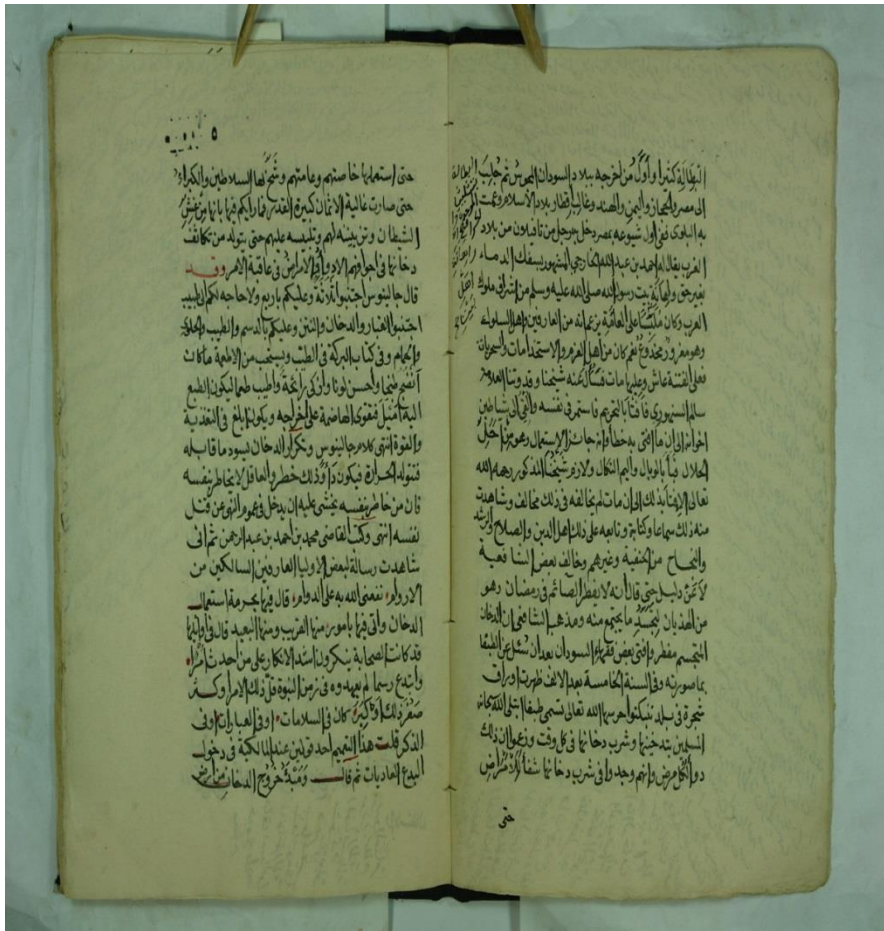 البطالة كثيرا وأول من اخرجه ببلاد السودان المجوس ثم جلب
الى مصر والحجاز واليمن والهند وغالب اقطار بلاد الاسلام وعمت
به البلوى ففي اول شيوعه بمصر دخل رجل من تافيلات من بلاد
الغرب يقال له احمد بن عبد الله الخارجي المشهور بسفك الدماء
بغير حق بيت رسول الله صلى الله عليه وسلم من اشراف ملوك
الغرب وكان على العاقبة بزعم انه من العارفين واهل السلوك
وهو مغرور مخدوع نعم كان من اهل العزم والاستخدامات والسحريات
فعلى الفتنة عاش وعليها مات فسأل عنه شيخنا وقدوتنا العلامة
سالم السنهوري فافتاه بالتحريم فاستمر في نفسه والقى الى شياطين
اخوانه ان ما افتى به خطأ وانه جائز الاستعمال وهو من احل
الحلال فبأ بالوبال واليم النكال ولازم شيخنا المذكور رحمه الله
تعالى الافتا بذلك الى ان مات لم يخالفه في ذلك مخالف وشاهدت
منه ذلك سماعا وكتابة وتابعه على ذلك اهل الدين والصلاح والرشد
والنجاح من الحنفية وغيرهم وخالف بعض الشافعية
لا عن دليل حتى قال انه لا يفطر الصائم في رمضان وهو
من الهذيان ما يجتمع منه ومذهب الشافعي ان الدخان
المتجسم مفطر وافتى بعض فقهاء السودان بعد ان سئل عن
بما صورته وفي السنة الخامسة بعد الالف ظهرت اوراق
شجرة في بلد تنبكتوا حرسها الله تعالى تسمى طبغا ابتلى الله بها
المسلمين بتدخينها وشرب دخانها في كل وقت وزعموا ان ذلك
دواء لكل مرض وانهم وجدوا في شرب دخانها شفا لامراض
حتى
٥
حتى استعملها خاصتهم وعامتهم وشح بها السلاطين والكبراء
حتى صارت غالية الاثمان كبيرة القدر فما رأيكم فيها بانها من غش
الشيطان وتزيينه لهم وتلبيسه عليهم حتى يتولد من تكاثف
دخانها في اجوافهم الادواء والامراض في عاقبة الامر وقد
قال جالينوس اجتنبوا ثلاثة وعليكم باربع ولا حاجة لكم لطبيب
اجتنبوا الغبار والدخان والنتن وعليكم بالدسم والطيب والحلوى
والحمام وفي كتاب البركة في الطب ويستحب من الاطعمة ما كان
انضج طبخا واحسن لونا وازكى رائحة واطيب طعما ليكون الطبع
اليه اميل فتقوى الهاضمة على ويكون ابلغ في التغذية
والقوة انتهى كلام جالينوس وتكرار الدخان يسود ما قابله
فتتولد الحرارة فيكون داء وذلك خطر والعاقل لا يخاطر بنفسه
فان من خاطر بنفسه يخشى عليه ان يدخل في عموم النهي عن قتل
نفسه انتهى وكتب القاضي محمد بن احمد بن عبد الرحمن ثم اني
شاهدت رسالة لبعض الاوليا العارفين السالكين من
الاروام نفعني الله به على الدوام قال فيها بحرمة استعمال
الدخان واتى فيها بامور منها القريب ومنها البعيد قال في اوائلها
قد كانت الصحابة ينكرون اشد الانكار على من احدث امرا
وابتدع رسما لم يعهدوه في زمن النبوة قل ذلك الامر او كثر
صغر ذلك او كبر كان في السلامات او في العبارات او في
الذكر قلت هذا التعميم احد قولين عند المالكية في دخول
البدع العاديات ثم قال ومبدأ خروج الدخان من ارض